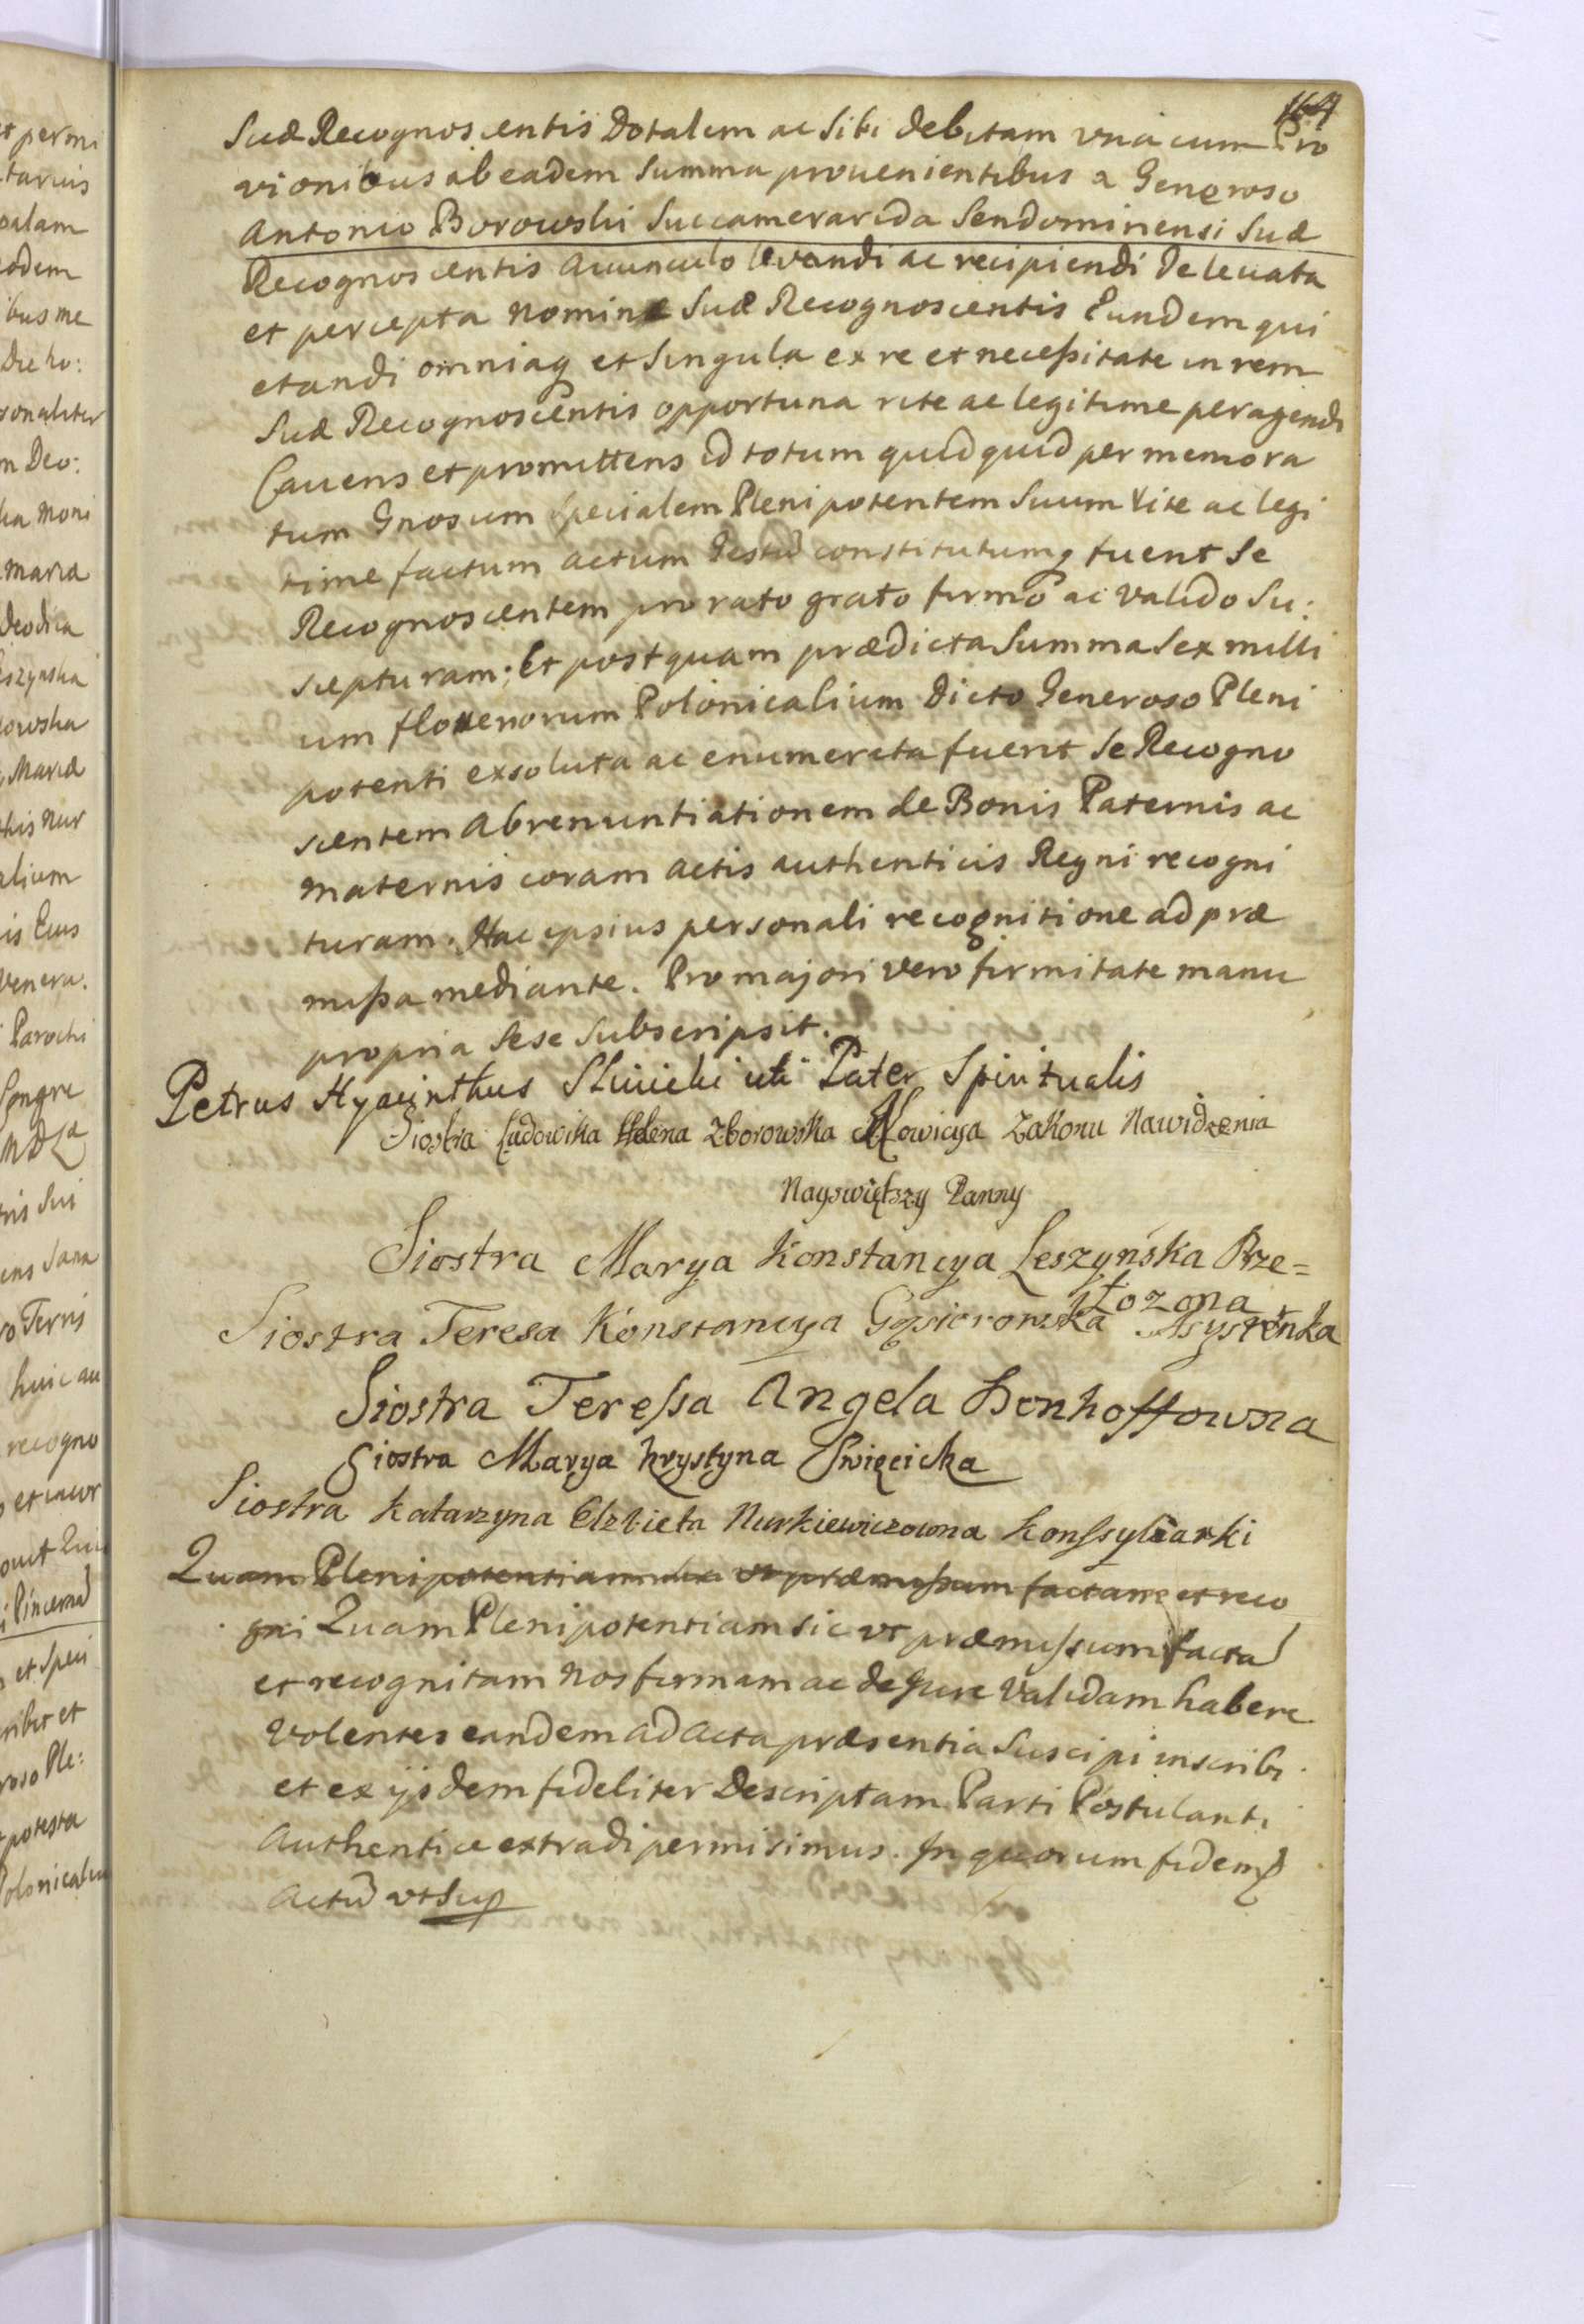 169
Suæ Recognoscentis Dotalem ac Sibi debitam vna cum Pro
vionibus ab eadem Summa prouenientibus a Generoso
Antonio Borowski Succamerarida Sendomiriensi Suæ
Recognoscentis Auunculo levandi ac recipiendi De leuata
et percepta Nomine Suæ Recognoscentis Eundem qui
etandi omniaq et Singula ex re et neceßitate in rem
Suæ Recognoscentis opportuna rite ac legitime peragendi
Cauens et promittens id totum quidquid per memora
tum Gnosum Specialem Plenipotentem Suum Rite ac legi
time factum actum Gestũ constitutumq fuerit Se
Recognoscentem pro rato grato firmo ac valido Su:
scepturam; Et postquam prædicta Summa Sex milli
um florenorum Polonicalium Dicto Generoso Pleni
potenti exsoluta ac enumerata fuerit Se Recogno
scentem Abrenuntiationem de Bonis Paternis ac
Maternis coram Actis authenticis Regni recogni
turam. Hac ipsius personali recognitione ad præ
mißa mediante. Pro majori vero firmitate manu
propria Sese Subscripsit.
Petrus Hyacinthus Sliwicki uti Pater Spiritualis
Siostra Ludowika Helena Zborowska Nowicya Zakonu Nawidzenia
Nayswiętszy Panny
Siostra Marya Konstancya Leszyńska Prze=
łozona
Siostra Teresa Konstancya Gąsiorowska Asystẽnka
Siostra Teressa Angela Denhoffowna
Siostra Marya Krystyna Swięcicka
Siostra Katarzyna Elzbieta Nurkiewiczowna Konssyliarki
Quam Plenipotentiam ut præmißum factam et reco
gni Quam Plenipotentiam sic vt præmissum factã
et recognitam Nos firmam ac de Jure Validam habere
Volentes eandem ad Acta præsentia Suscipi inscribi
et ex ijsdem fideliter Descriptam Parti Postulanti
Authentice extradi permisimus. In quorum fidem
Actũ vt Sup